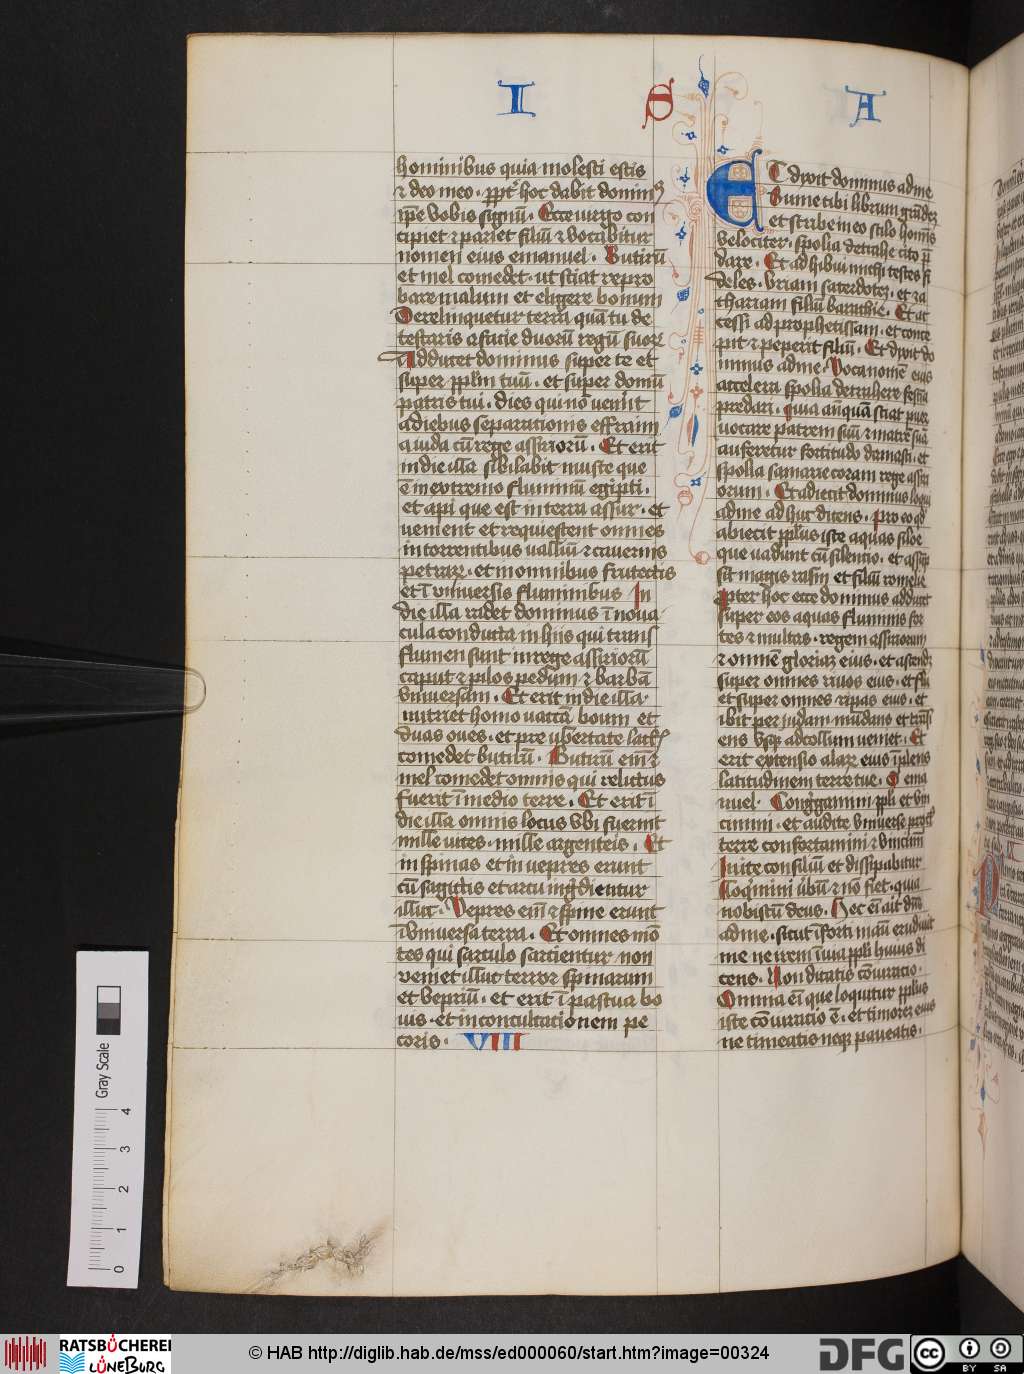 I S A
hominibus quia molesti estis
⁊ deo meo . ppt̄ hoc dabit dominꝰ
ip̄e vobis signū . Ecce virgo con
cipiet ⁊ pariet filiū ⁊ vocabitur
nomen eius emanuel . Butirū
et mel comedet . ut sciat repro
bare malum et eligere bonum
Derelinquetur terra quā tu de
testaris a facie duorū regū suoꝝ
Adducet dominus super te et
super pplm̄ tuū . et super domū
patris tui . dies qui nō venert̄
a diebus separationis effraim
a iuda cū rege assiriorū . Et erit
in die illa sibilabit musce que
ē in extremo fluminū egipti .
et api que est in terra assur . et
venient et requiescent omnes
in torrentibus valliū ⁊ cavernis
petraꝝ . et in omnibus frutectis
et ī vniversis fluminibus In
die illa radet dominus ī nova
cula conducta in hiis qui trans
flumen sunt in rege assiriorū
caput ⁊ pilos pedum ⁊ barbā
vniversam . Et erit in die illa
nutriet homo vaccā boum et
duas oves . et pre vbertate lactꝭ
comedet butirū . Butirū eīm ⁊
mel comedet omnis qui relictus
fuerit ī medio terre . Et erit ī
die illa omnis locus vbi fuerint
mille vites . mille argenteis . Et
in spinas et in vepres erunt
cū sagittis et arcu ingr̄dientur
illuc . Vepres eīm ⁊ spine erunt
ī vniversa terra . Et omnes mō
tes qui sarculo sarcientur non
veniet illuc terror spinarum
et vepriū . et erit ī pascua bo
vis . et in conculcacionem pe
coris . VIII
ET dixit dominus ad me
Sume tibi librum grādeꝫ
et scribe in eo stilo homīs
velociter . spolia detrahe cito p̄
dare . Et adhibui michi testes fi
deles . vriam sacerdoteꝫ . et za
thariam filiū barachie . Et ac
cessi ad prophetissam . et conce
pit ⁊ peperit filiū . Et dixit do
minus ad me . Voca nomē eius
accelera spolia detrahere festīa
predari . quia an̄quā sciat puer
vocare patrem suū ⁊ matrē suā
auferetur fortitudo damasci . et
spolia samarie coram rege assiri
orum . Et adiecit dominus loqui
ad me adhuc dicens . Pro eo qd̄
abiecit pplus iste aquas siloe
que vadunt cū silencio . et assūp
sit magis rasin et filiū romelie
ppter hoc ecce dominus adducet
super eos aquas fluminis for
tes ⁊ multas . regem assiriorum
⁊ omnē gloriaꝫ eius . et ascendꝫ
super omnes rivos eius . et flu
et super omnes ripas eius . et
ibit per iudam inūdans et trāsi
ens vsqꝫ ad collum veniet . Et
erit extensio alaꝝ eius īplens
latitudinem terre tue . O ema
nuel . Congr̄gamini ppli et vin
cimini . et audite vniverse procl̄
terre confortamini ⁊ vincimī
Inite consiliū et dissipabitur
Loqīmini v̄bū ⁊ nō fiet . quia
nobiscū deus . Hec eī ait dn̄s
ad me . sicut ī forti manū erudivit
me ne irem ī via ppl̄i huius di
cens . Non dicatis cōiuracio .
Omnia eī que loquitur pplus
iste cōiuracio ē . et timoreꝫ eius
ne timeatis neqꝫ paveatis .
Gray Scale
0 1 2 3 4
RATSBÜCHEREI
LÜNEBURG
© HAB http://diglib.hab.de/mss/ed000060/start.htm?image=00324
DFG
CC BY SA